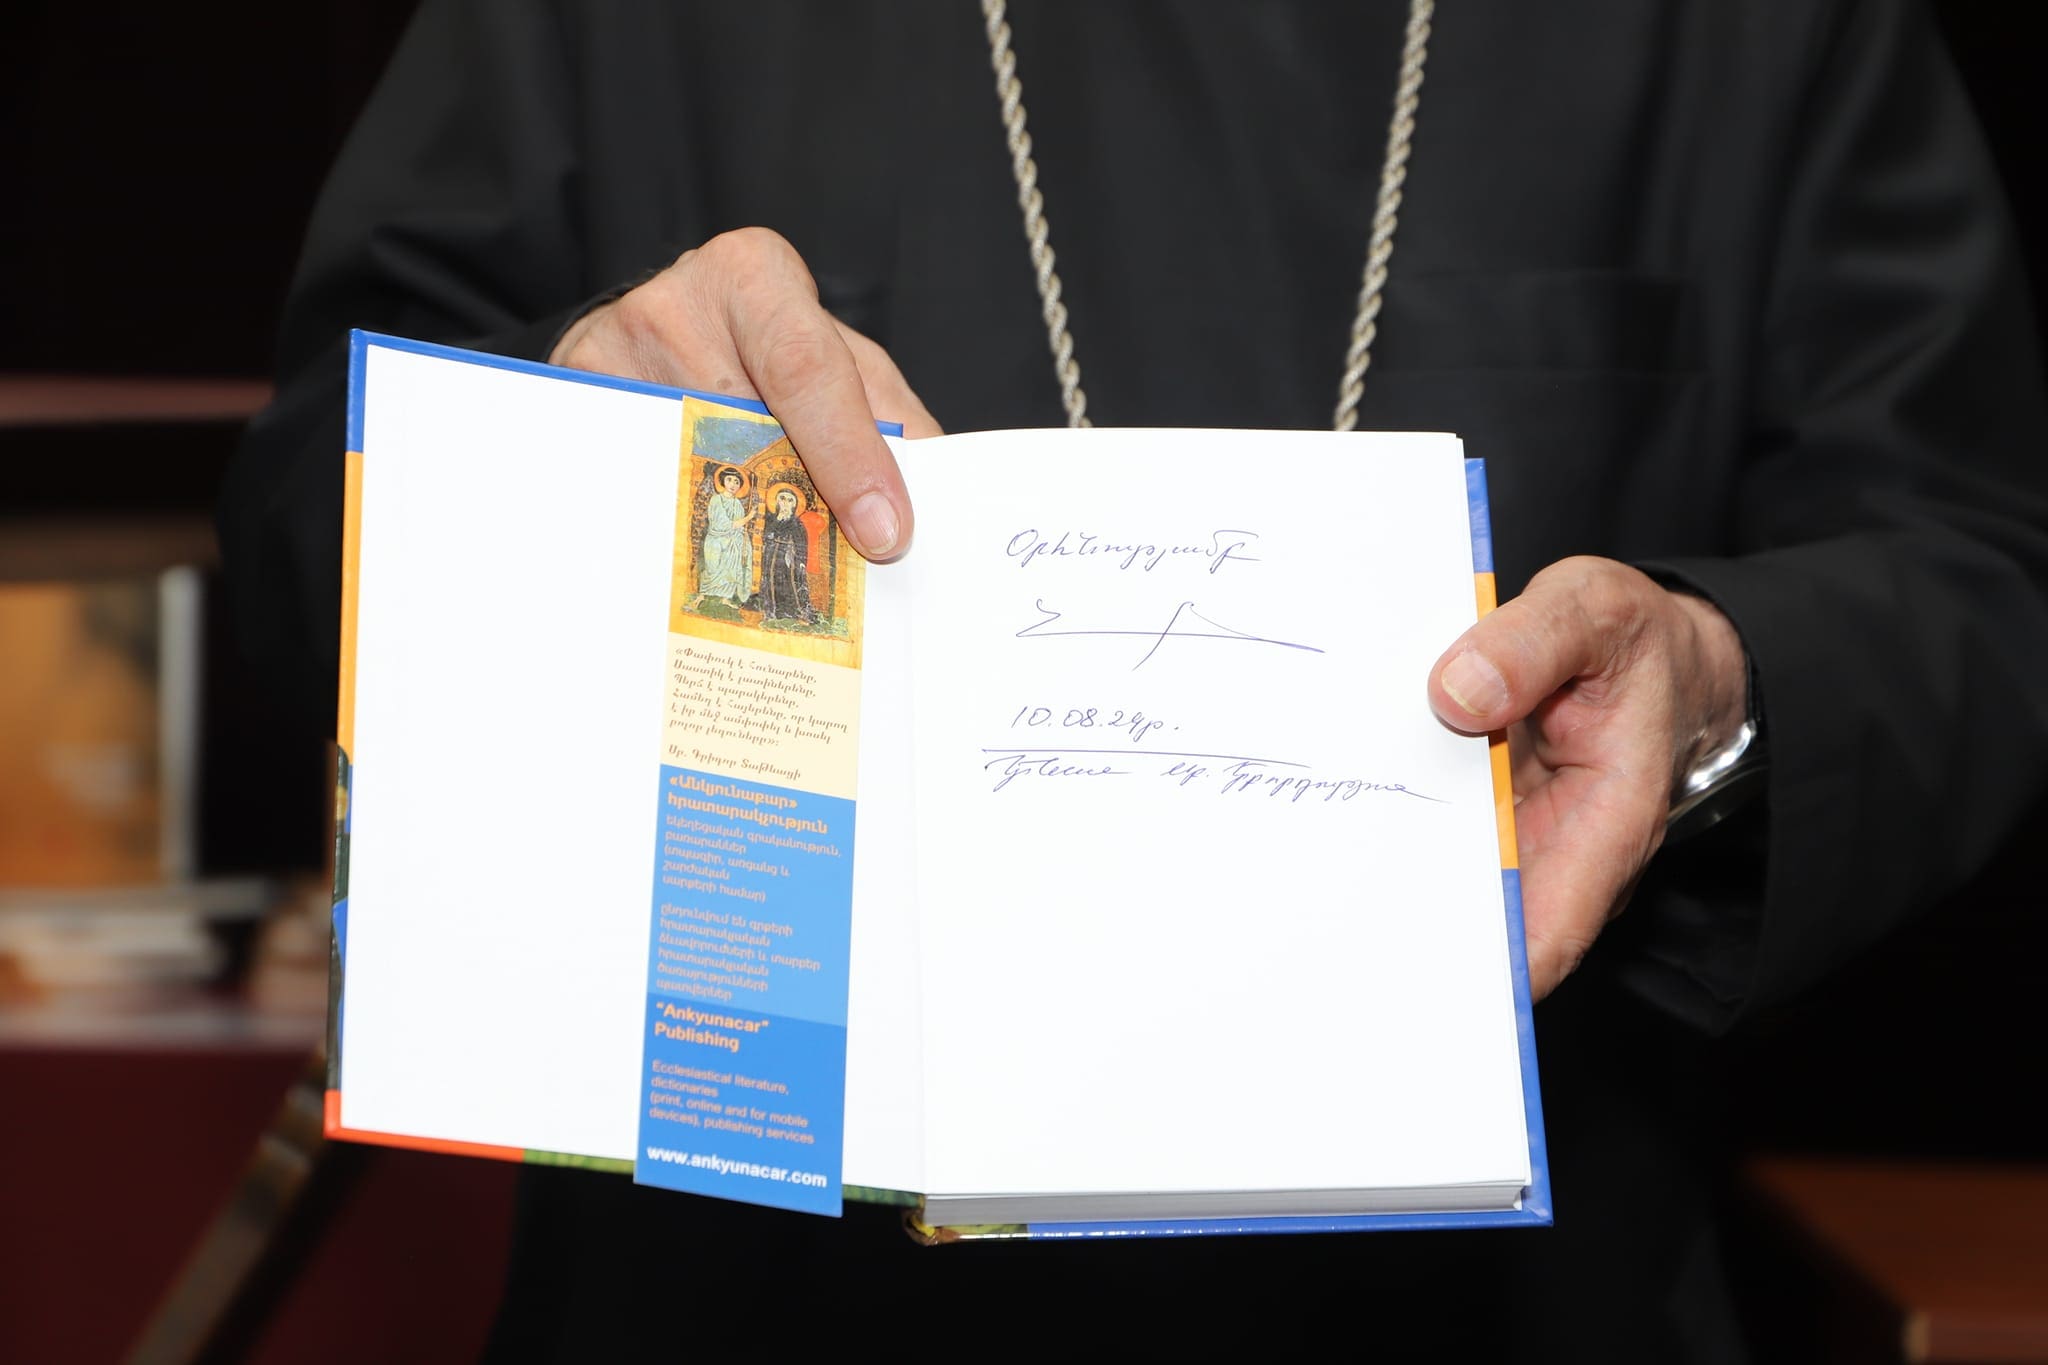 «Փափուկ է Հունարենը,
Սաստիկ է լատիներենը,
Պերճ է պարսկերենը,
Համեղ է Հայերենը, որ կարող
է իր մեջ ամփոփել և խոսել
բոլոր լեզուները»։
Սբ. Գրիգոր Տաթևացի
«Անկյունաքար»
հրատարակչություն
եկեղեցական գրականություն,
բառարաններ
(տպագիր, առցանց և
շարժական
սարքերի համար)
ընդունվում են գրքերի
հրատարակչական
ձևավորումների և տարբեր
հրատարակչական
ծառայությունների
պատվերներ
"Ankyunacar"
Publishing
Ecclesiastical literature,
dictionaries
(print, online and for mobile
devices), publishing services
www.ankyunacar.com
Օրհնությամբ
10.08.24թ.
Սբ. Երրորդություն